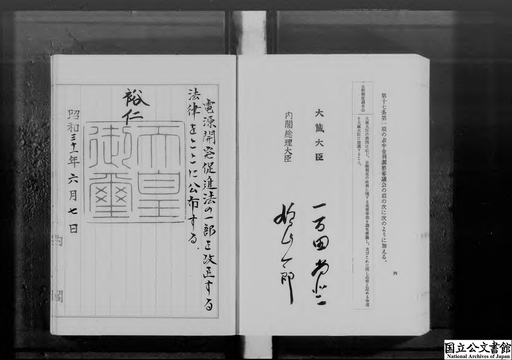 第十七条第一項の表中金利調整審議会の項の次に次のように加える。
大蔵大臣
一万田尚登
内閣総理大臣
鳩山一郎
電源開発促進法の一部を改正する
法律をここに公布する。
裕仁
天皇
御璽
昭和三十一年六月七日
国立公文書館
National Archives of Japan